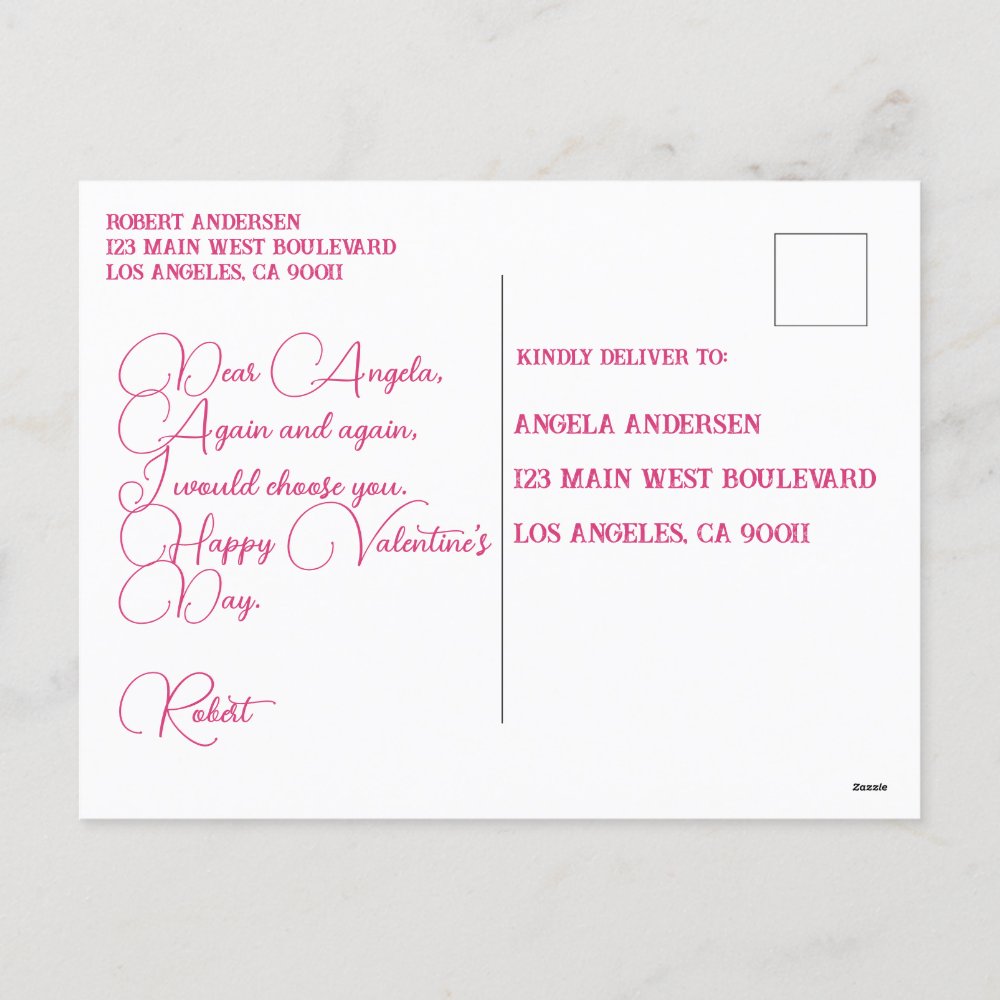 ROBERT ANDERSEN
123 MAIN WEST BOULEVARD
LOS ANGELES, CA 90011
Dear Angela,
Again and again,
I would choose you.
Happy Valentine's
Day.
Robert
KINDLY DELIVER TO:
ANGELA ANDERSEN
123 MAIN WEST BOULEVARD
LOS ANGELES, CA 90011
Zazzle